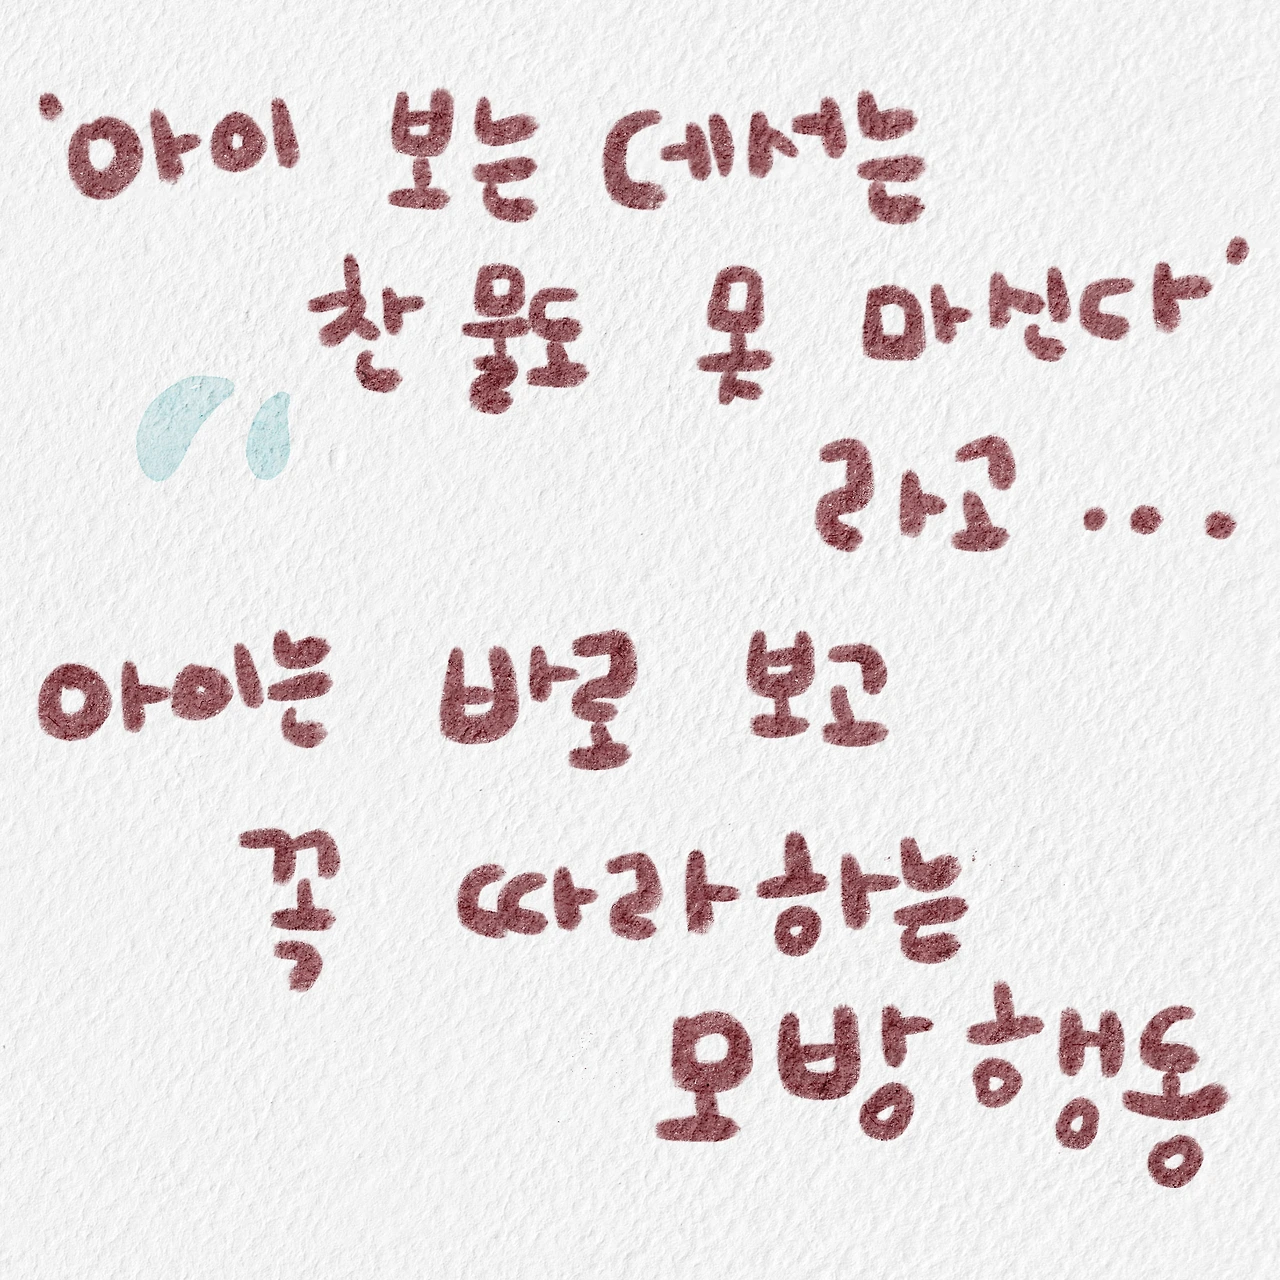 '아이 보는 데서는
찬물도 못 마신다'
라고...
아이는 바로 보고
꼭 따라하는
모방행동